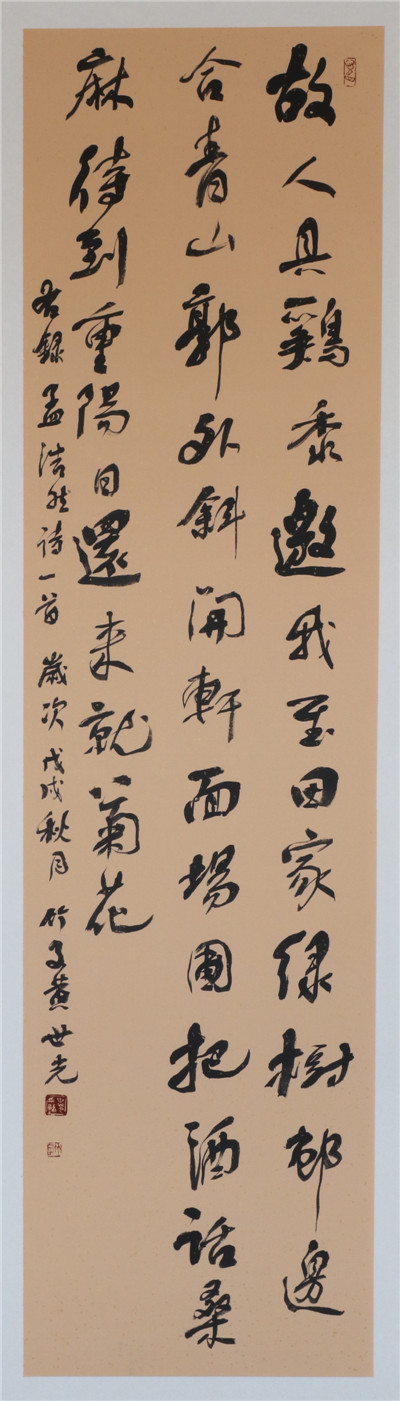 故人具鷄黍邀我至田家绿樹邨邊
合青山郭外斜開軒面場圃把酒话桑
麻待到重陽日還来就菊花
右録孟浩然诗一首歲次戊戌秋月竹子黄世光